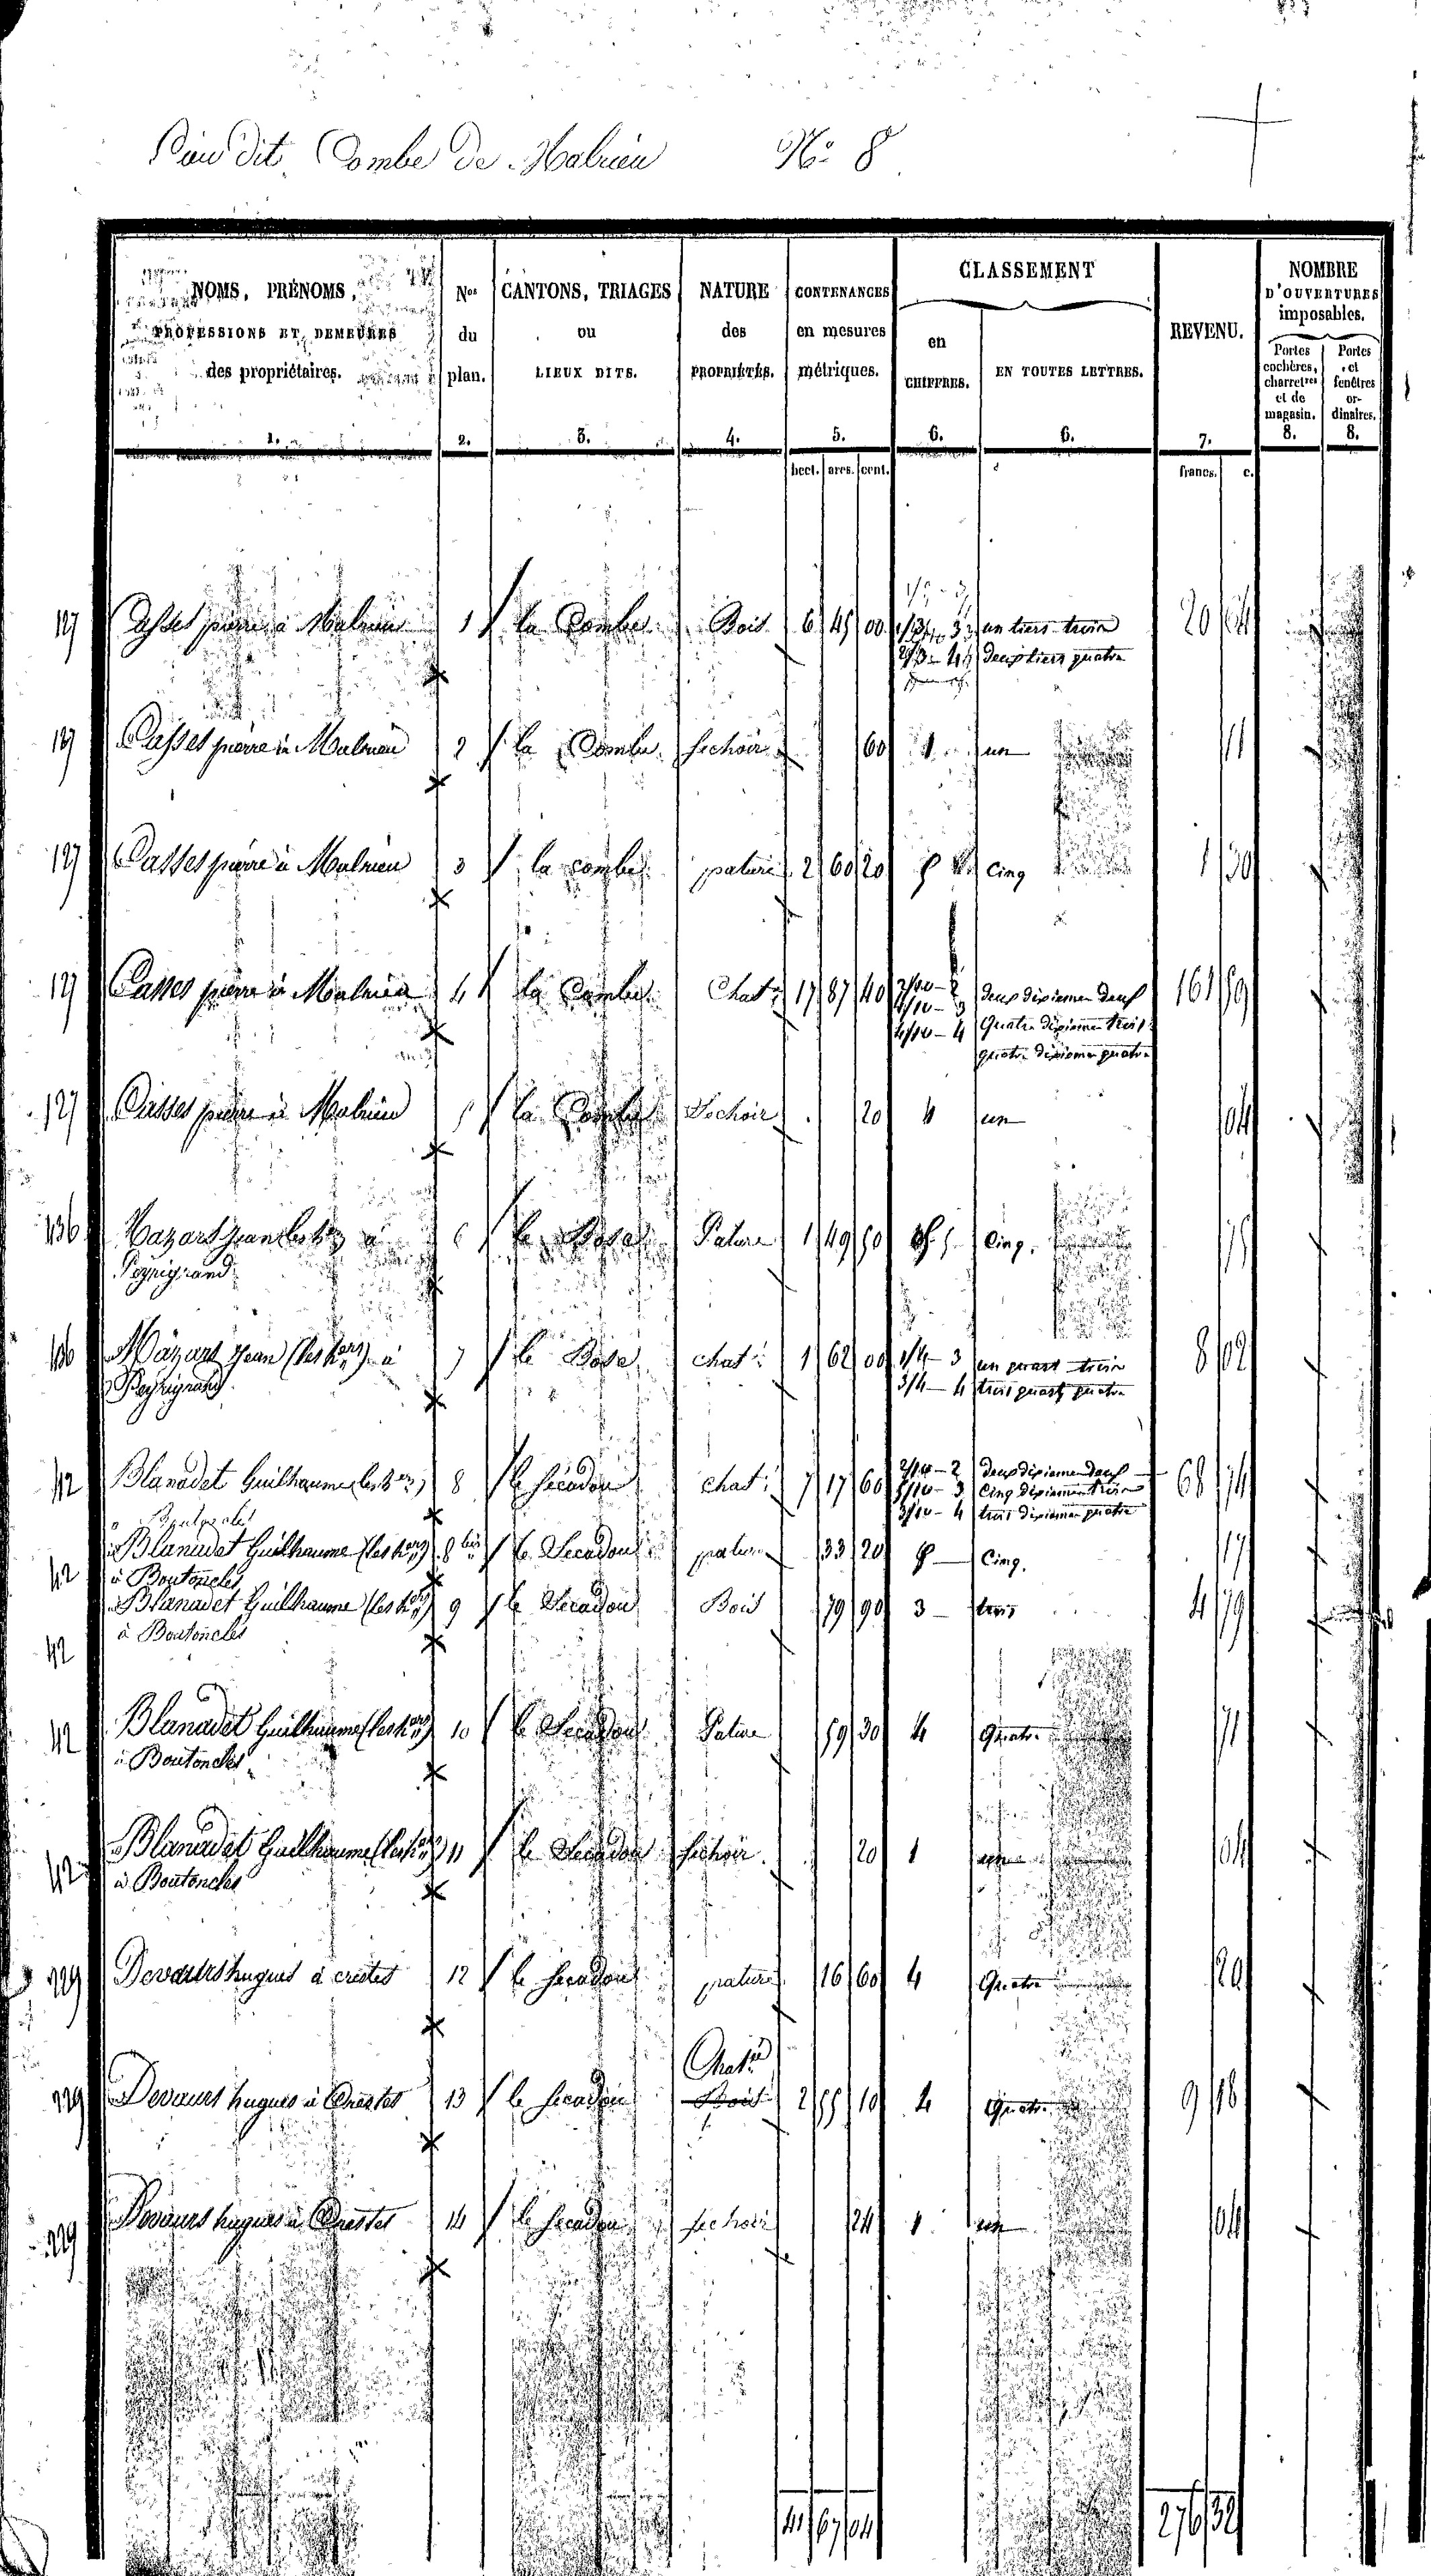 Lieu dit Combe de Malrieu N° 8
NOMS, PRÉNOMS,
PROFESSIONS ET DEMEURES
des propriétaires.
1.
Nos
du
plan.
2.
CANTONS, TRIAGES
ou
LIEUX DITS.
3.
NATURE
des
PROPRIÉTÉS.
4.
CONTENANCES
en mesures
métriques.
5.
hect. ares. cent.
CLASSEMENT
en
CHIFFRES.
6.
EN TOUTES LETTRES.
6.
REVENU.
7.
francs. c.
NOMBRE
D'OUVERTURES
imposables.
Portes
cochères,
charretres
et de
magasin.
8.
Portes
et
fenêtres
or-
dinaires.
8.
127 Casses pierre à Malrieu 1 la Combe Bois 6 45 00 1/3 3 un tiers trois 20 64
2/3 - 4 deux tiers quatre
127 Casses pierre à Malrieu 2 la Combe sechoir 60 1 un 11
127 Casses pierre à Malrieu 3 la combe pature 2 60 20 5 Cinq 1 30
127 Casses pierre à Malrieu 4 la Combe Chat: 17 87 40 2/10 - 2 deux dixiemes deux 161 59
4/10 - 3 Quatre dixiemes trois
4/10 - 4 quatre dixiemes quatre
127 Casses pierre à Malrieu 5 la Combe Sechoir 20 1 un 04
136 Mazars Jean (les hers) à 6 le Bose Pature 1 49 50 5 Cinq. 75
Peyrigrand
136 Mazars Jean (les hers) à 7 le Bose chat: 1 62 00 1/4 - 3 un quart trois 8 02
Peyrigrand 3/4 - 4 trois quarts quatre
42 Blanadet Guilhaume (les hers) 8 le Secadou chat: 7 17 60 2/10 - 2 deux dixiemes deux 68 74
5/10 - 3 Cinq dixiemes trois
3/10 - 4 trois dixiemes quatre
42 Blanadet Guilhaume (les hers) 8 bis le Secadou pature 33 20 5 Cinq. 17
à Boutoncles
42 Blanadet Guilhaume (les hers) 9 le Secadou Bois 79 90 3 trois 4 79
à Boutoncles
42 Blanadet Guilhaume (les hers) 10 le Secadou Pature 59 30 4 Quatre 71
à Boutoncles
42 Blanadet Guilhaume (les hers) 11 le Secadou sechoir 20 1 un 04
à Boutoncles
229 Devaurs hugues à crestes 12 le Secadou pature 16 60 4 Quatre 20
Chat:
229 Devaurs hugues à Crestes 13 le Secadou Bois 2 55 10 4 Quatre 9 18
229 Devaurs hugues à Crestes 14 le Secadou sechoir 24 1 un 04
41 67 04 276 32